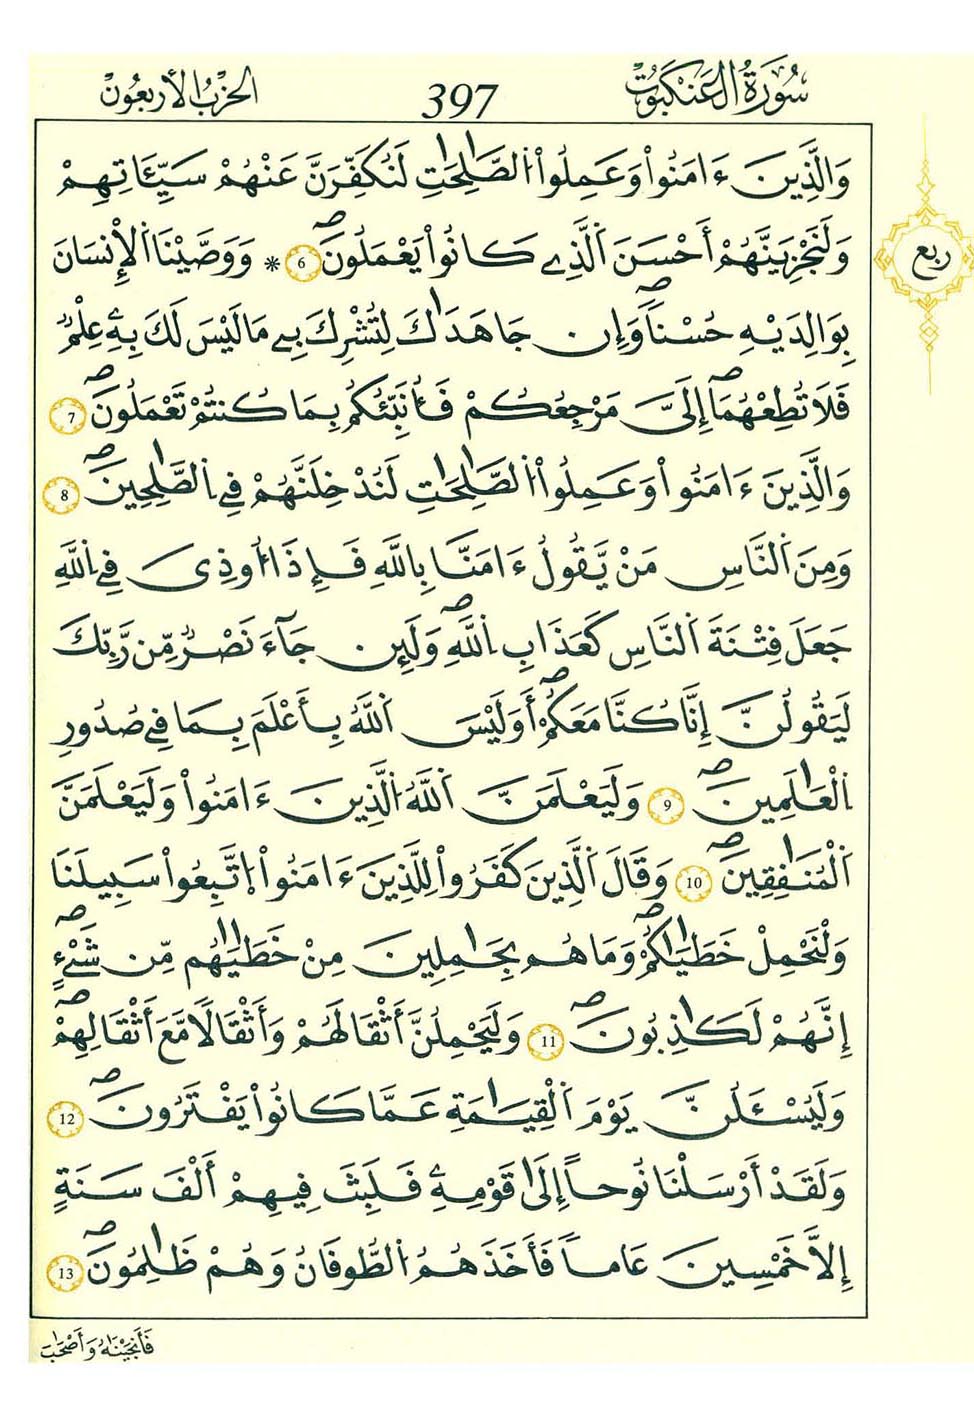 سُورَةُ الْعَنكَبُوتِ 397 الحِزْبُ الأَرْبَعُونَ
وَالَّذِينَ ءَامَنُواْ وَعَمِلُواْ الصَّٰلِحَٰتِ لَنُكَفِّرَنَّ عَنْهُمْ سَيِّـَٔاتِهِمْ
وَلَنَجْزِيَنَّهُمْ أَحْسَنَ الَّذِے كَانُواْ يَعْمَلُونَۖ 6 * وَوَصَّيْنَا الْإِنسَانَ
ربع
بِوَالِدَيْهِ حُسْناًۖ وَإِن جَاهَدَٰكَ لِتُشْرِكَ بِے مَا لَيْسَ لَكَ بِهِۦ عِلْمٌ
فَلَا تُطِعْهُمَاۖ إِلَيَّ مَرْجِعُكُمْ فَأُنَبِّئُكُم بِمَا كُنتُمْ تَعْمَلُونَۖ 7
وَالَّذِينَ ءَامَنُواْ وَعَمِلُواْ الصَّٰلِحَٰتِ لَنُدْخِلَنَّهُمْ فِے الصَّٰلِحِينَۖ 8
وَمِنَ النَّاسِ مَنْ يَّقُولُ ءَامَنَّا بِاللَّهِ فَإِذَا أُوذِيَ فِے اللَّهِ
جَعَلَ فِتْنَةَ النَّاسِ كَعَذَابِ اللَّهِۖ وَلَئِن جَآءَ نَصْرٌ مِّن رَّبِّكَ
لَيَقُولُنَّ إِنَّا كُنَّا مَعَكُمْۖ أَوَلَيْسَ اللَّهُ بِأَعْلَمَ بِمَا فِے صُدُورِ
الْعَٰلَمِينَۖ 9 وَلَيَعْلَمَنَّ اللَّهُ الَّذِينَ ءَامَنُواْ وَلَيَعْلَمَنَّ
الْمُنَٰفِقِينَۖ 10 وَقَالَ الَّذِينَ كَفَرُواْ لِلَّذِينَ ءَامَنُواْ اتَّبِعُواْ سَبِيلَنَا
وَلْنَحْمِلْ خَطَٰيَٰكُمْۖ وَمَا هُم بِحَٰمِلِينَ مِنْ خَطَٰيَٰهُم مِّن شَےْءٍۖ
إِنَّهُمْ لَكَٰذِبُونَۖ 11 وَلَيَحْمِلُنَّ أَثْقَالَهُمْ وَأَثْقَالًا مَّعَ أَثْقَالِهِمْۖ
وَلَيُسْـَٔلُنَّ يَوْمَ الْقِيَٰمَةِ عَمَّا كَانُواْ يَفْتَرُونَۖ 12
وَلَقَدْ أَرْسَلْنَا نُوحاً إِلَىٰ قَوْمِهِۦ فَلَبِثَ فِيهِمْ أَلْفَ سَنَةٍ
إِلَّا خَمْسِينَ عَاماً فَأَخَذَهُمُ الطُّوفَانُ وَهُمْ ظَٰلِمُونَۖ 13
فَأَنجَيْنَٰهُ وَأَصْحَٰبَ